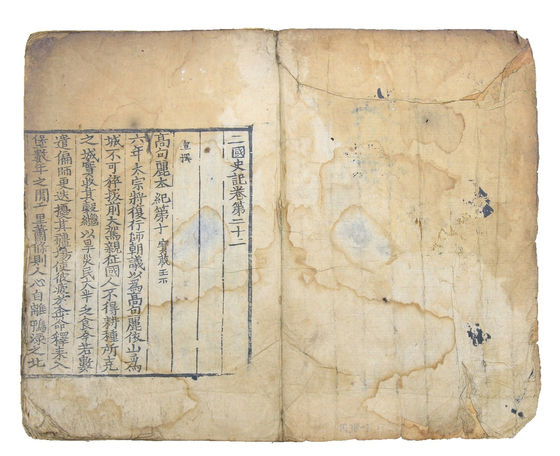 三國史記卷第二十二
宣撰
高句麗本紀第十 寶臧王下
六年太宗將復行師朝議以爲高句麗依山爲
城不可猝拔前大駕親征國人不得耕種所克
之城實收其穀繼以旱災民太半乏食今若數
遣偏師更迭擾其疆場使彼疲於奔命釋耒入
堡數年之間千里蕭條則人心自離鴨渌之北